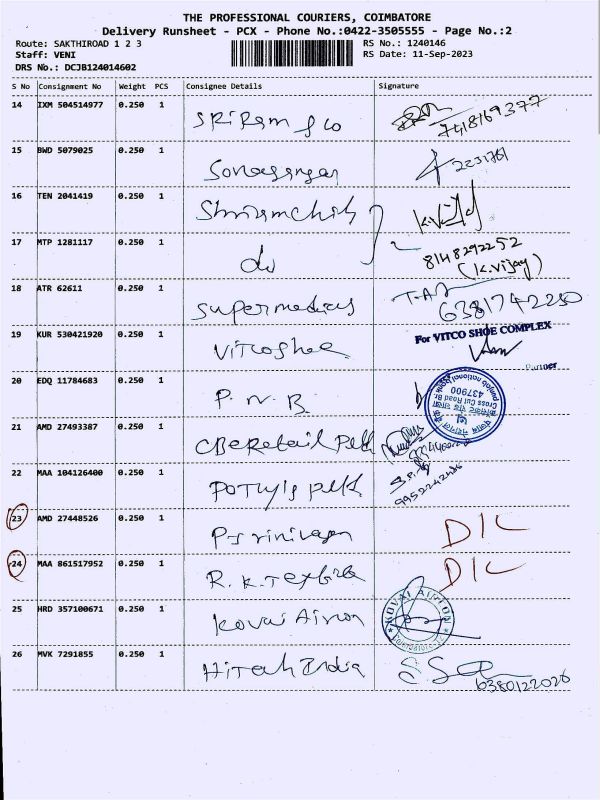 THE PROFESSIONAL COURIERS, COIMBATORE
Delivery Runsheet - PCX - Phone No.:0422-3505555 - Page No.:2
Route: SAKTHIROAD 1 2 3 RS No.: 1240146
Staff: VENI RS Date: 11-Sep-2023
DRS No.: DCJB124014602
S No Consignment No Weight PCS Consignee Details Signature
14 IXM 504514977 0.250 1 SRi Ram & co 7418169377
15 BWD 5079025 0.250 1
16 TEN 2041419 0.250 1
17 MTP 1281117 0.250 1 do 8148292252
(K.Vijay)
18 ATR 62611 0.250 1 Supermedicas 6381742250
19 KUR 530421920 0.250 1 Vitcoshoe For VITCO SHOE COMPLEX
Partner
20 EDQ 11784683 0.250 1 P.N.B punjab national bank
Cross Cut Road Br.
437900
21 AMD 27493387 0.250 1 CBE Retail
22 MAA 104126400 0.250 1 POTHYS 9952242486
23 AMD 27448526 0.250 1 P Srinivasan D/L
24 MAA 861517952 0.250 1 R.K.Textile D/L
25 HRD 357100671 0.250 1 Kovai Airion KOVAI AIRION
26 MVK 7291855 0.250 1 HiTech India 6380122026